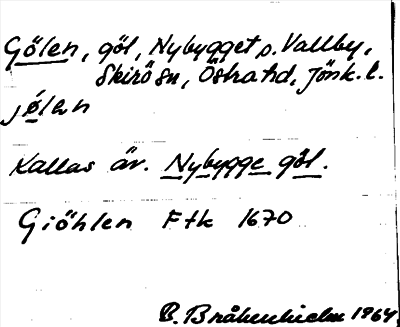 Gölen, göl, Nybygget o. Vallby,
Skirö sn, Östra hd, Jönk. l.
jø̄len
Kallas äv. Nybygge göl.
Giöhlen Ftk 1670
B. Bråkenhielm 1964.